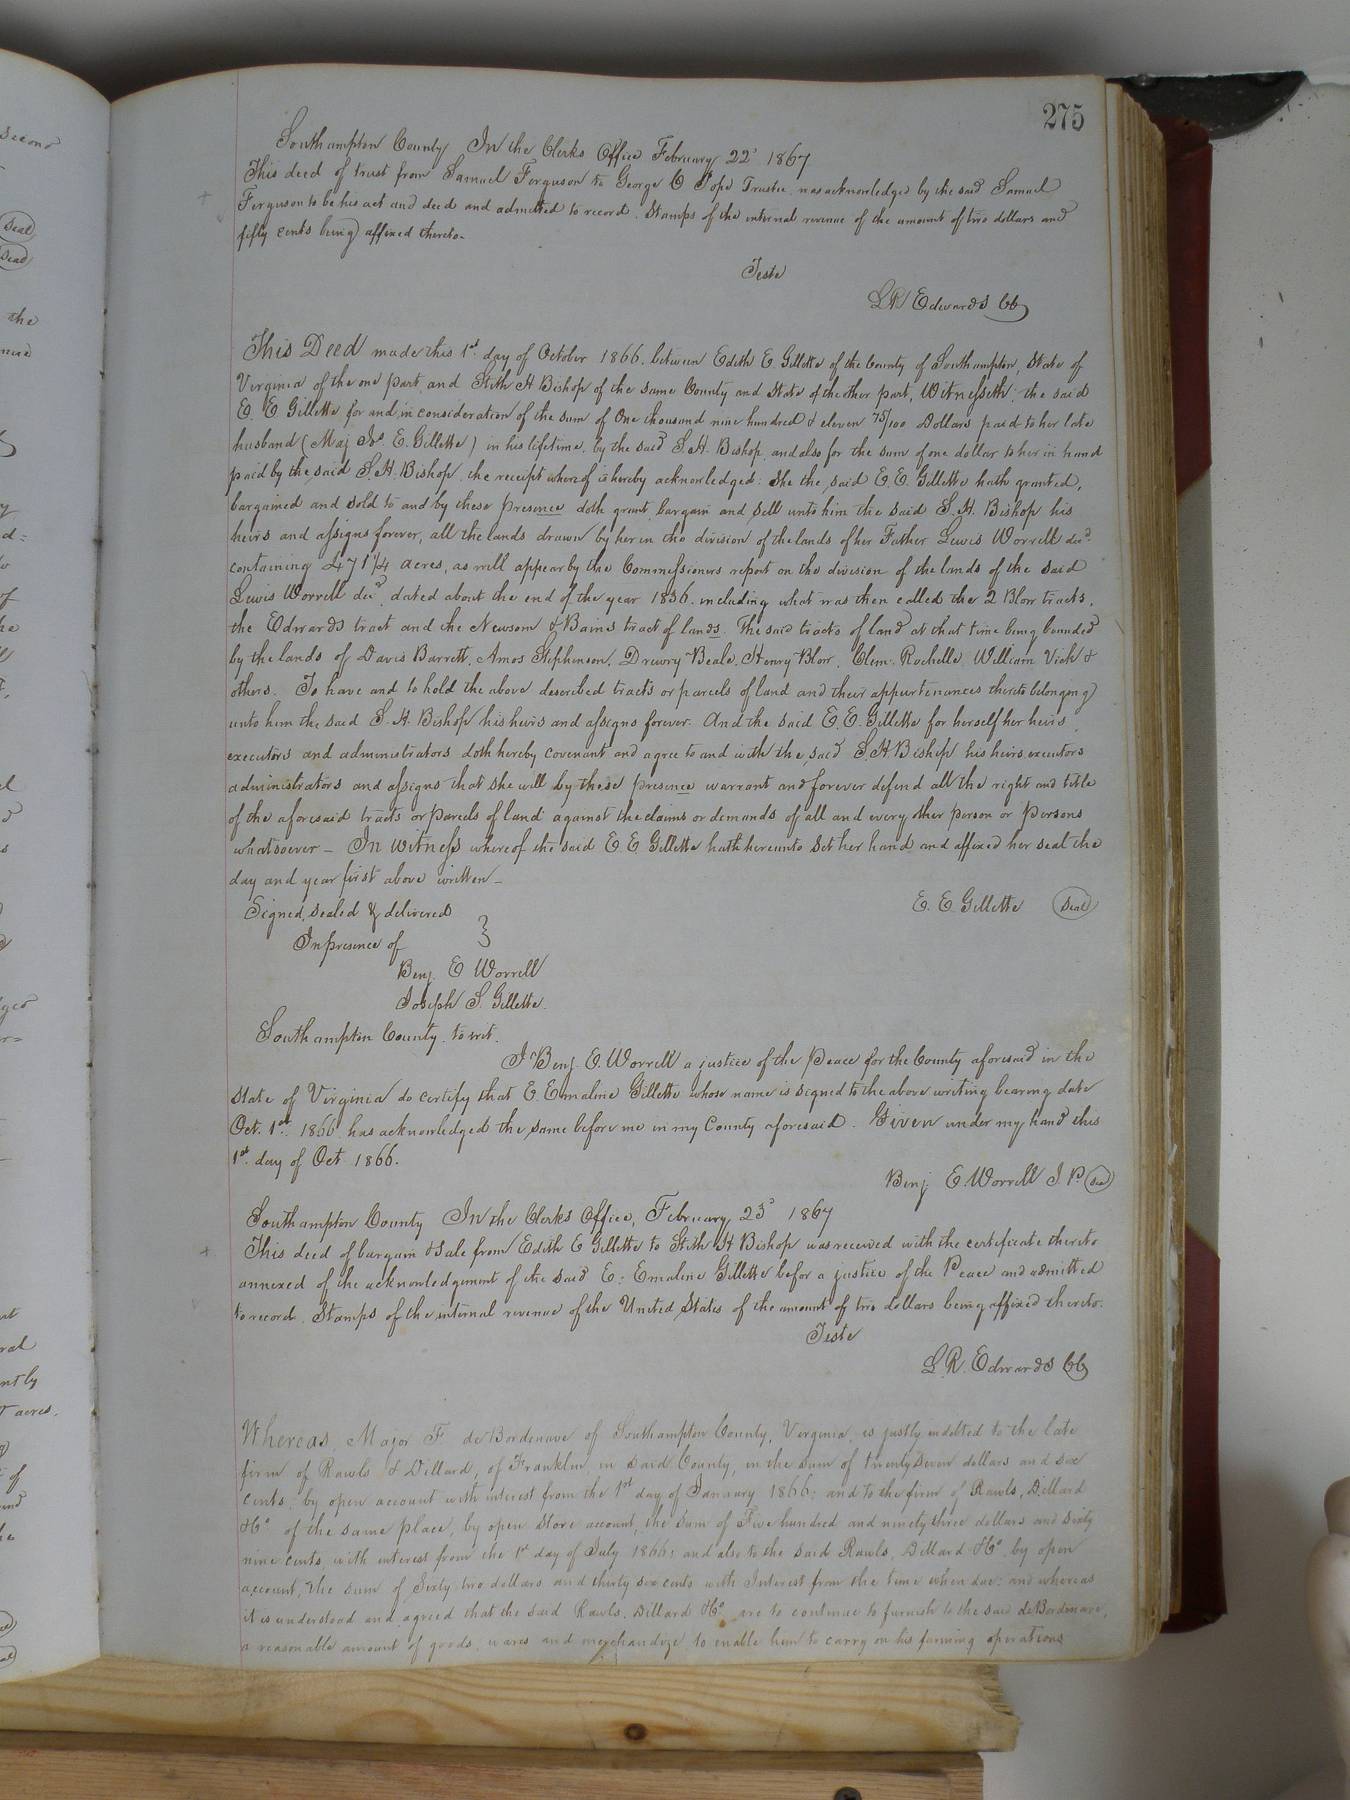 275
Southampton County In the Clerks Office February 22d 1867
This deed of trust from Samuel Ferguson to George O Pope Trustee was acknowledged by the said Samuel
Ferguson to be his act and deed and admitted to record. Stamps of the internal revenue of the amount of two dollars and
fifty cents being affixed thereto.
Teste
L R Edwards CC
This Deed made this 1st day of October 1866. between Edith E Gillette of the County of Southampton, State of
Virginia of the one part, and Stith H Bishop of the same County and State of the other part, Witnesseth; the said
E. E Gillette for and in consideration of the sum of One thousand nine hundred & eleven 75/100 Dollars paid to her late
husband (Maj Jos. E. Gillette) in his lifetime, by the said S. H. Bishop, and also for the sum of one dollar to her in hand
paid by the said S. H. Bishop, the receipt whereof is hereby acknowledged: She the said E. E. Gillette hath granted,
bargained and sold to and by these presence doth grant bargain and sell unto him the said S. H. Bishop his
heirs and assigns forever, all the lands drawn by her in the division of the lands of her Father Lewis Worrell decd.
containing 471 1/4 acres, as will appear by the Commissioners report on the division of the lands of the said
Lewis Worrell decd. dated about the end of the year 1836. including what was then called the 2 Blow tracts,
the Edwards tract and the Newsom & Bains tract of lands. The said tracts of land at that time being bounded
by the lands of Davis Barrett, Amos Stephenson, Drewry Beale, Henry Blow, Clem. Rochelle William Vick &
others. To have and to hold the above described tracts or parcels of land and their appurtenances thereto belonging
unto him the said S. H. Bishop his heirs and assigns forever. And the said E. E. Gillette for herself her heirs,
executors and administrators doth hereby covenant and agree to and with the said S. H. Bishop his heirs executors
administrators and assigns that she will by these presence warrant and forever defend all the right and title
of the aforesaid tracts or parcels of land against the claims or demands of all and every other person or persons
whatsoever — In witness whereof the said E. E Gillette hath hereunto set her hand and affixed her seal the
day and year first above written —
Signed, sealed & delivered E. E Gillette Seal
In presence of
Benj. E Worrell
Joseph S. Gillette.
Southampton County to wit.
I Benj. E. Worrell a justice of the Peace for the County aforesaid in the
state of Virginia do certify that E. Emaline Gillette whose name is signed to the above writing bearing date
Oct. 1st 1866 has acknowledged the same before me in my County aforesaid. Given under my hand this
1st day of Oct 1866.
Benj. E. Worrell J. P. Seal
Southampton County In the Clerks Office, February 23d 1867
This deed of bargain & Sale from Edith E Gillette to Stith H Bishop was received with the certificate thereto
annexed of the acknowledgement of the said E: Emaline Gillette befor a justice of the Peace and admitted
to record. Stamps of the internal revenue of the United States of the amount of two dollars being affixed thereto.
Teste
L. R. Edwards CC
Whereas, Major F. deBordenave of Southampton County, Virginia, is justly indebted to the late
firm of Rawls & Dillard, of Franklin in said County, in the sum of twenty seven dollars and six
cents, by open account with interest from the 1st day of January 1866; and to the firm of Rawls, Dillard
& Co of the same place, by open store account, the sum of Five hundred and ninety three dollars and sixty
nine cents, with interest from the 1st day of July 1866; and also to the said Rawls, Dillard & Co. by open
account, the sum of Sixty two dollars and thirty six cents with Interest from the time when due: and whereas
it is understood and agreed that the said Rawls, Dillard & Co. are to continue to furnish to the said deBordenave,
a reasonable amount of goods, wares and merchandize to enable him to carry on his farming operations